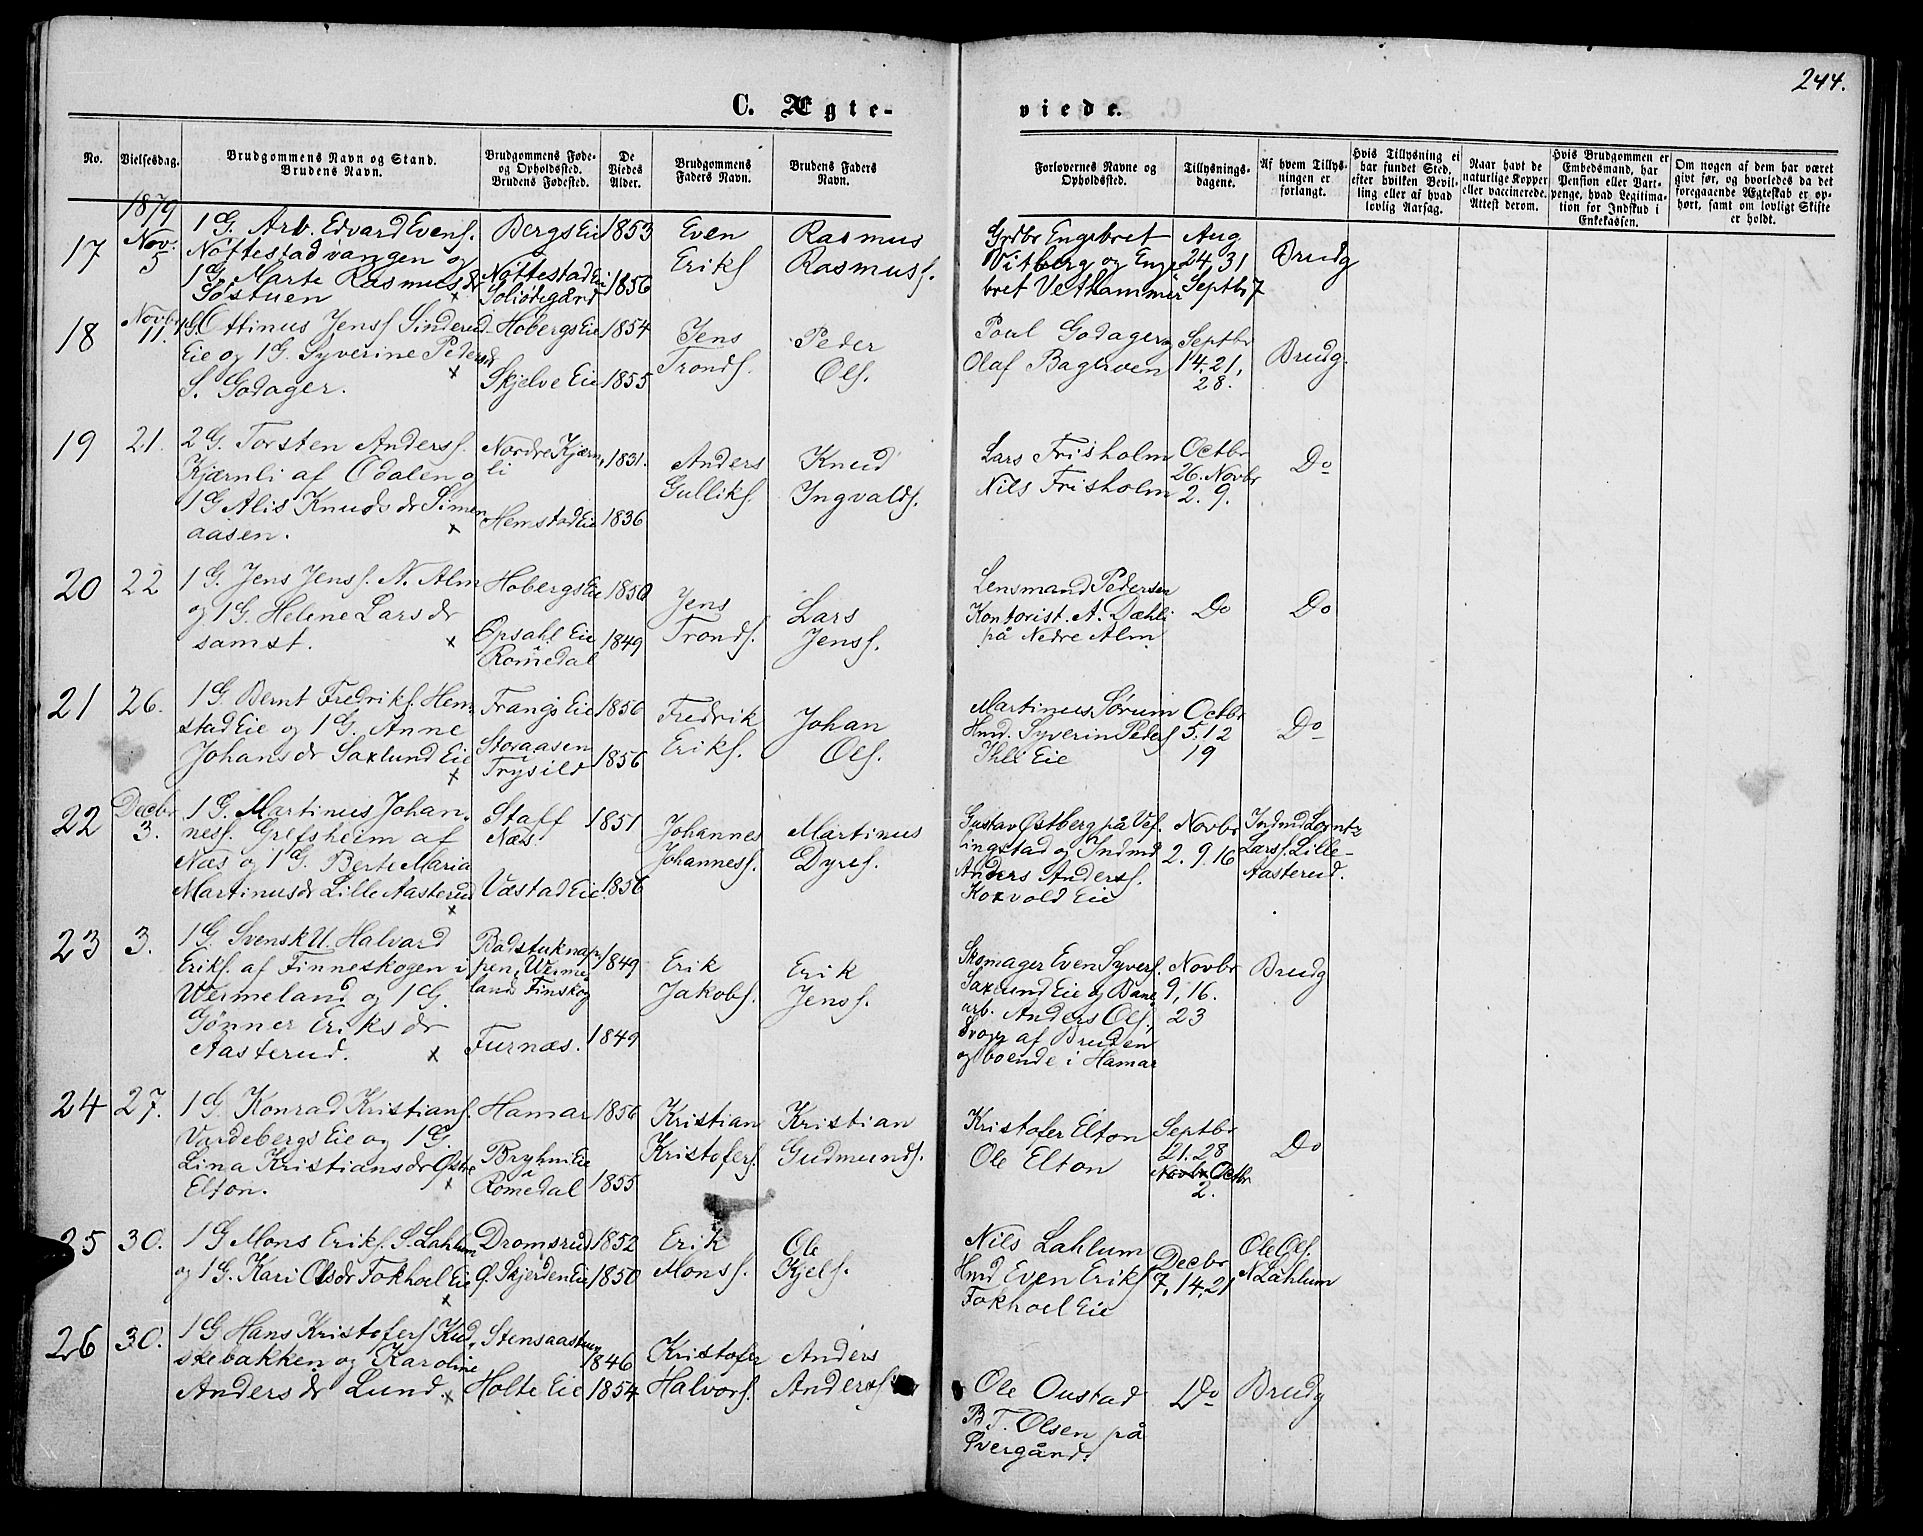 244.
C. Ægte-
viede.
No.
Vielsesdag.
Brudgommens Navn og Stand.
Brudens Navn.
Brudgommens Føde-
og Opholdssted.
Brudens Fødested.
De
Viedes
Alder.
Brudgommens
Faders Navn.
Brudens Faders
Navn.
Forlovernes Navne og
Opholdssted.
Tillysnings-
dagene.
Af hvem Tillys-
ningen er
forlangt.
Hvis Tillysning ei
har fundet Sted,
efter hvilken Bevil-
ling eller af hvad
lovlig Aarsag.
Naar havt de
naturlige Kopper
eller vaccinerede.
Attest derom.
Hvis Brudgommen er
Embedsmand, har
Pension eller Vart-
penge, hvad Legitima-
tion for Indskud i
Enkekassen.
Om nogen af dem har været
givt før, og hvorledes da det
foregaaende Ægteskab er op-
hørt, samt om lovligt Skifte
er holdt.
1879
17
Nov.
5
1 G. Arb. Edvard Evens.
Nøttestadvangen og
1 G Marte Rasmusdr
Søstuen x
Bergs Eie
Nøttestad Ei
1853
1856
Even
Eriks.
Rasmus
Rasmuss.
Grdbr Engebret
Vitberg og Enge
bret Vethammer
Aug
24. 31
Septbr 7
Brudg
18
Novbr
11.
1 G. Ottinus Jenss. Sinderud
Eie og 1 G. Syverine Pedersdr
S. Godager. x
Hobergs Eie
Skjelve Eie
1854
1855
Jens
Tronds.
Peder
Ols.
Poul Godager og
Olaf Bagerven
Septbr
14. 21,
28.
Brudg.
19
21.
2 G. Torsten Anderss.
Kjærnli af Odalen og
1 G Alis Knudsdr Simen
aasen. x
Nordre Kjærn,
li
Hemstad Eie
1831.
1836
Anders
Gulliks.
Knud
Ingvalds.
Lars Frisholm
Nils Frisholm
Octbr
26. Novbr
2. 9.
Do
20
22
1 G. Jens Jenss. N. Alm
og 1 G. Helene Larsdr
samst. x
Hobergs Eie
Opsahl Eie
i
Romedal
1850
1849
Jens
Tronds.
Lars
Jenss.
Lensmand Pedersen
Kontorist. A. Dæhli
på Nedre Alm
Do
Do
21
26.
1 G. Bernt Fredriks. Hem-
stad Eie og 1 G. Anne
Johansdr Saxlund Eie
x
Frangs Eie
Storaasen
Trysild
1856
1856
Fredrik
Eriks.
Johan
Ols.
Martinus Sørum
Hmd. Syverin Peders
Ihle Eie
Octbr
5. 12
19
Do
22
Decbr
3.
1 G. Martinus Johan-
ness. Grefsheim af
Næs og 1 G. Berte Maria
Martinusdr Lille Aasterud
x
Staff
Næs.
Vestad Eie.
1851
1856
Johannes
Johanness.
Martinus
Dyres.
Gustav Østberg på Vef.
lingstad og Indmd
Anders Anderss.
Koxvold Eie
Novbr
2. 9. 16
Indmd Lornts
Larss. Lille-
Aasterud.
23
3.
1 G. Svensk U. Halvard
Eriks. af Finneskogen i
Wermeland og 1 G.
Gønner Eriksdr
Aasterud. x
Badstuknap
pen, Werme
lands Finskog
Furnæs.
1849
1849
Erik
Jakobs.
Erik
Jenss.
Skomager Even Syvers.
Saxlund Eie og Bane
arb. Anders Ols.,
Svoger af Bruden
og boende i Hamar
Novbr
9, 16.
23
Brudg
24
27.
1 G. Konrad Kristians.
Vardebergs Eie og 1 G.
Lina Kristiansdr Østre
Elton. x
Hamar
Bryhni Eie
i
Romedal
1856
1855
Kristian
Kristofers.
Kristian
Gudmunds.
Kristofer Elton
Ole Elton
Septbr
21. 28
Novbr Octbr
2.
Do
25
30.
1 G Mons Eriks. S. Lahlum
og 1 G. Kari Olsdr Fokhoel Eie
x
Dromsrud
Ø. Skjerden Eie
1852
1850
Erik
Monss.
Ole
Kjels.
Nils Lahlum
Hmd Even Eriks
Fokhoel Eie
Decbr
7. 14. 21
Ole Ols.
N Lahlum
26
30.
1 G Hans Kristofers Kud,
skebakken og Karoline
Andersdr Lund. x
Stensaastuen
Holte Eie
1846
1854
Kristofer
Halvors.
Anders
Anderss.
Ole Oustad
B. T. Olsen på
Øvergård.
Do
Brudg